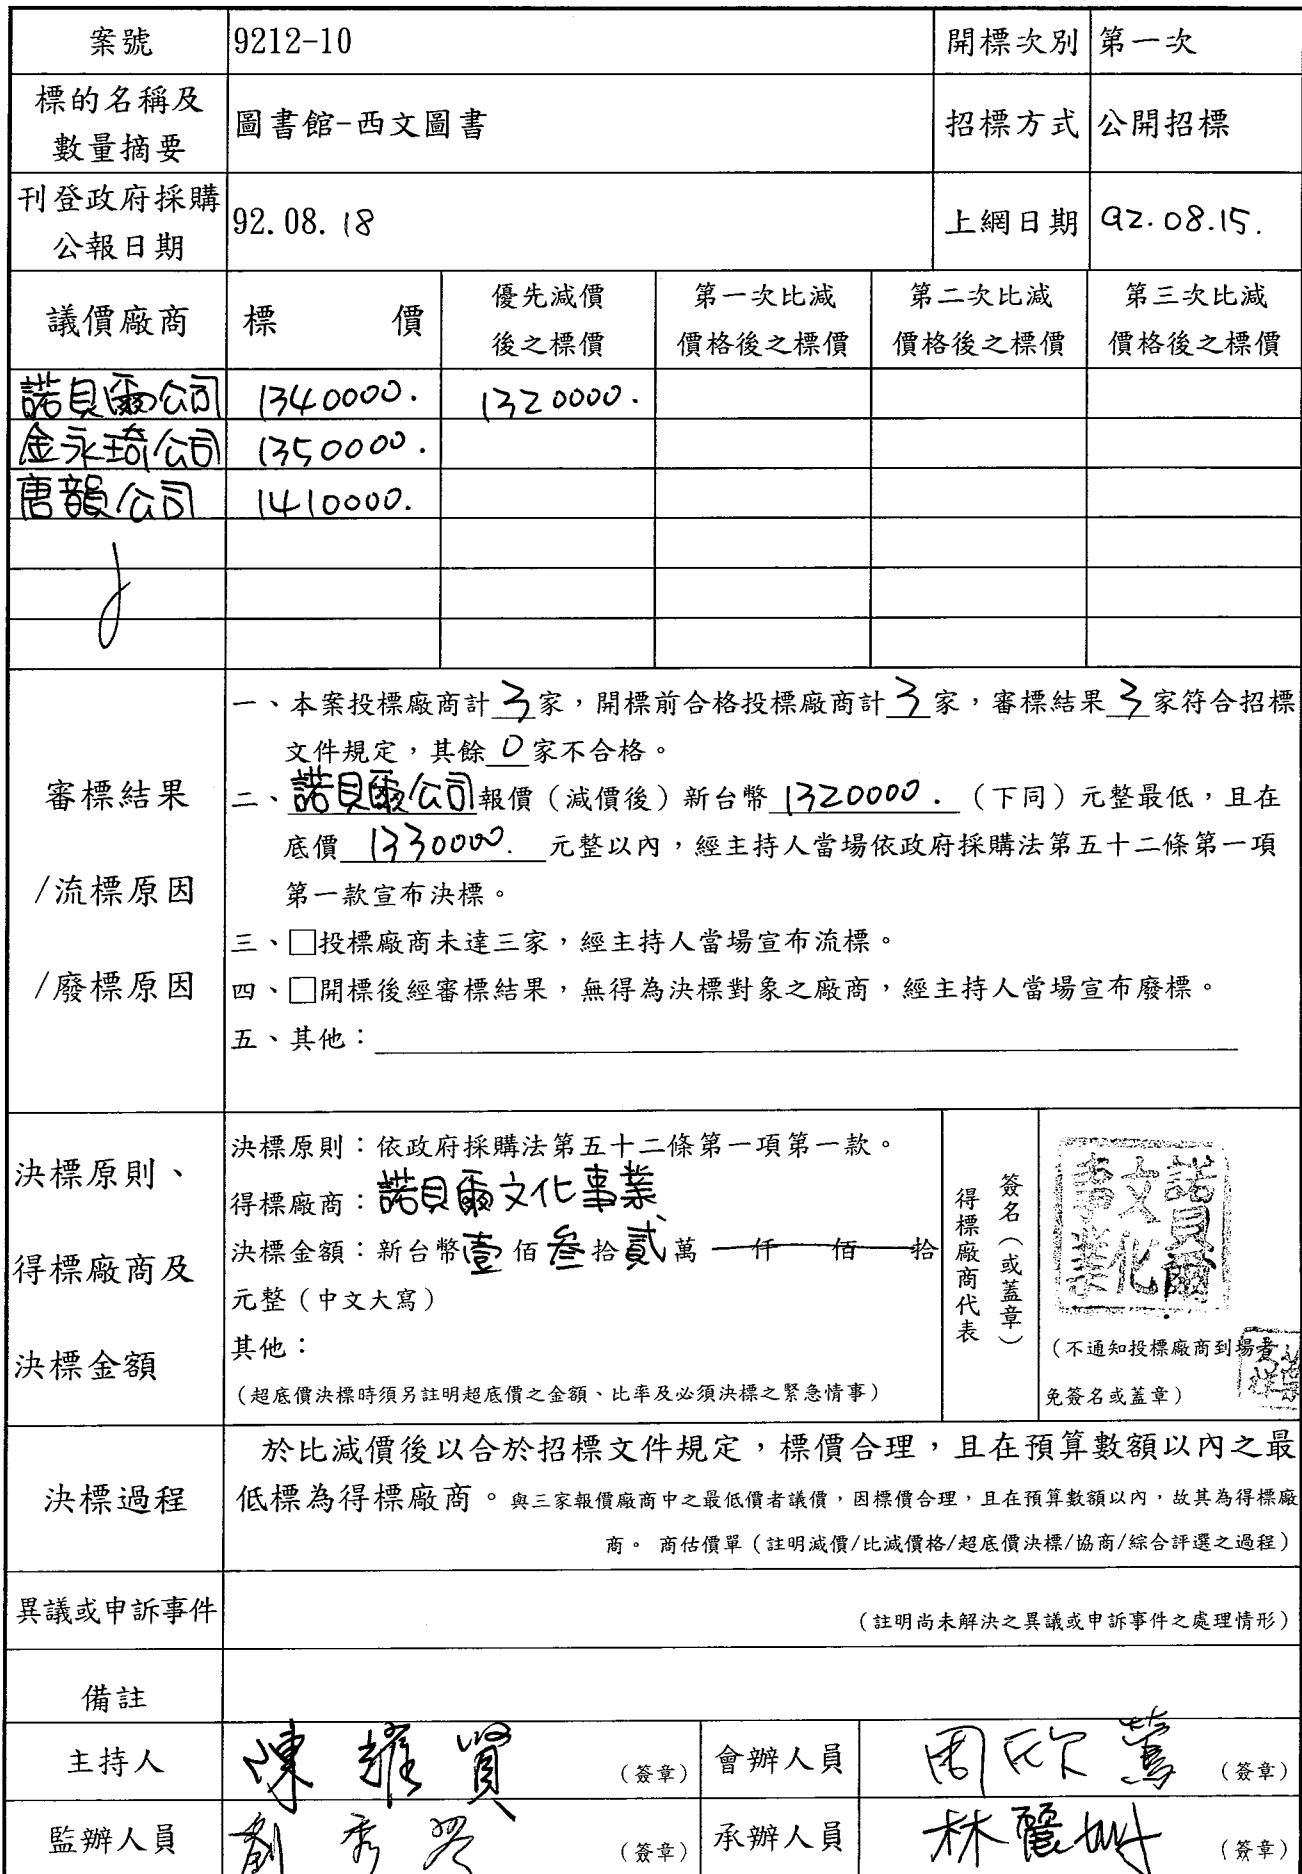 案號 9212-10 開標次別 第一次
標的名稱及
數量摘要
圖書館-西文圖書 招標方式 公開招標
刊登政府採購
公報日期
92.08.18 上網日期 92.08.15.
議價廠商 標 價
優先減價
後之標價
第一次比減
價格後之標價
第二次比減
價格後之標價
第三次比減
價格後之標價
諾貝爾公司 1340000. 1320000.
金永琦公司 1350000.
唐韻公司 1410000.
審標結果
/流標原因
/廢標原因
一、本案投標廠商計3家，開標前合格投標廠商計3家，審標結果3家符合招標
文件規定，其餘0家不合格。
二、諾貝爾公司報價（減價後）新台幣1320000.（下同）元整最低，且在
底價1330000.元整以內，經主持人當場依政府採購法第五十二條第一項
第一款宣布決標。
三、□投標廠商未達三家，經主持人當場宣布流標。
四、□開標後經審標結果，無得為決標對象之廠商，經主持人當場宣布廢標。
五、其他：
決標原則、
得標廠商及
決標金額
決標原則：依政府採購法第五十二條第一項第一款。
得標廠商：諾貝爾文化事業
決標金額：新台幣壹佰叁拾貳萬 仟 佰 拾
元整（中文大寫）
其他：
（超底價決標時須另註明超底價之金額、比率及必須決標之緊急情事）
得標廠商代表
簽名（或蓋章）
諾貝爾
文化
事業
（不通知投標廠商到場者
免簽名或蓋章）
決標過程
於比減價後以合於招標文件規定，標價合理，且在預算數額以內之最
低標為得標廠商。與三家報價廠商中之最低價者議價，因標價合理，且在預算數額以內，故其為得標廠
商。 商估價單（註明減價/比減價格/超底價決標/協商/綜合評選之過程）
異議或申訴事件 （註明尚未解決之異議或申訴事件之處理情形）
備註
主持人 陳 賢 （簽章） 會辦人員 周欣鶯 （簽章）
監辦人員 劉秀 （簽章） 承辦人員 林麗 （簽章）